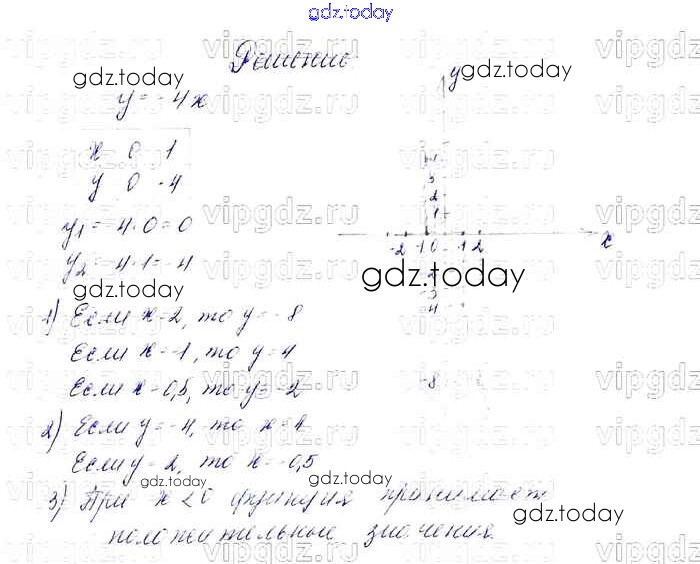 gdz.today
Решение
y = -4x
x 0 1
y 0 -4
y₁ = -4·0 = 0
y₂ = -4·1 = -4
1) Если x=2, то y=-8
Если x=-1, то y=4
Если x=0,5, то y=-2
2) Если y=-4, то x=1
Если y=2, то x=-0,5
3) При x<0 функция принимает
положительные значения.
y
3
2
1
-2 -1 0 1 2 x
-2
-3
-4
-8
gdz.today
gdz.today
gdz.today
gdz.today
gdz.today
gdz.today
gdz.today
vipgdz.ru